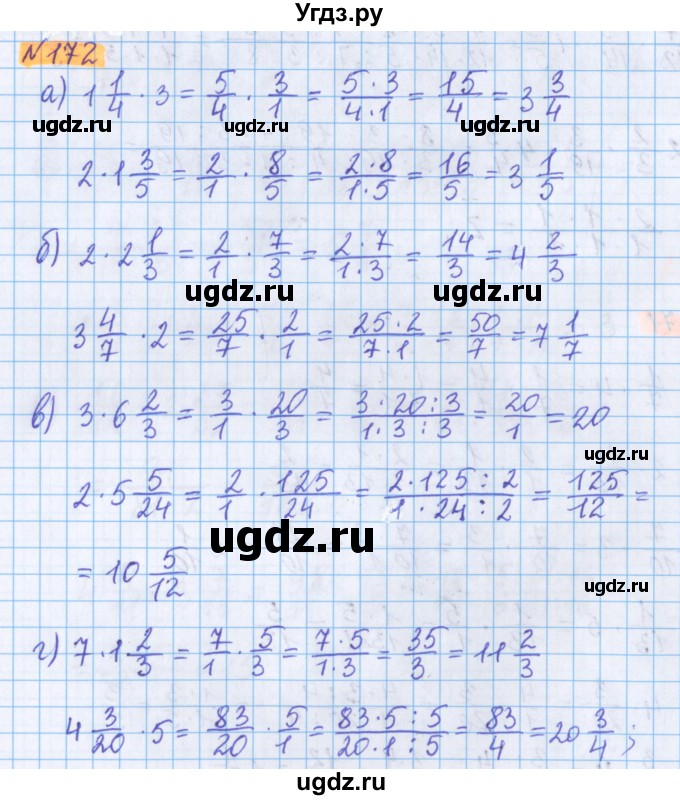 Угдз.ру
№172
а) 1 1/4 · 3 = 5/4 · 3/1 = 5·3/4·1 = 15/4 = 3 3/4
ugdz.ru ugdz.ru ugdz.ru
2 · 1 3/5 = 2/1 · 8/5 = 2·8/1·5 = 16/5 = 3 1/5
б) 2 · 2 1/3 = 2/1 · 7/3 = 2·7/1·3 = 14/3 = 4 2/3
ugdz.ru ugdz.ru
3 4/7 · 2 = 25/7 · 2/1 = 25·2/7·1 = 50/7 = 7 1/7
в) 3 · 6 2/3 = 3/1 · 20/3 = 3·20:3/1·3:3 = 20/1 = 20
ugdz.ru
2 · 5 5/24 = 2/1 · 125/24 = 2·125:2/1·24:2 = 125/12 =
ugdz.ru
= 10 5/12
ugdz.ru
г) 7 · 1 2/3 = 7/1 · 5/3 = 7·5/1·3 = 35/3 = 11 2/3
ugdz.ru
4 3/20 · 5 = 83/20 · 5/1 = 83·5:5/20·1:5 = 83/4 = 20 3/4;
ugdz.ru ugdz.ru